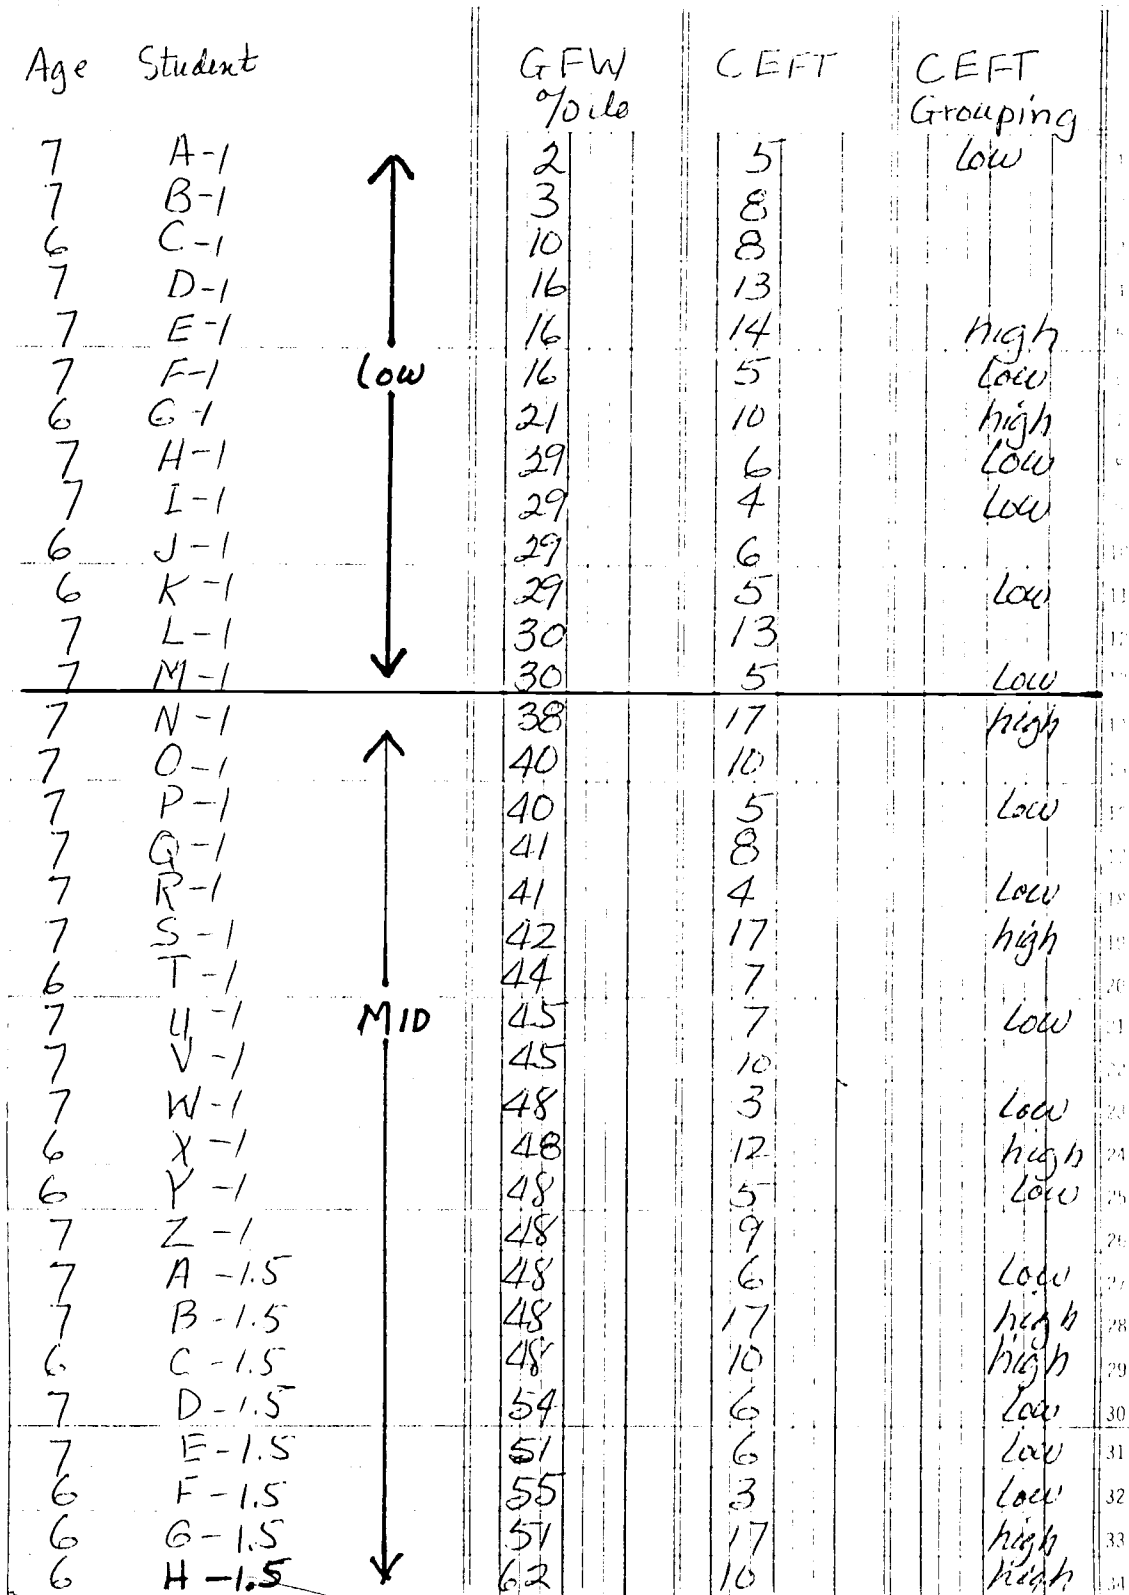 Age Student GFW CEFT CEFT
%ile Grouping
7 A-1 2 5 low
7 B-1 3 8
6 C-1 10 8
7 D-1 16 13
7 E-1 16 14 high
7 F-1 low 16 5 low
6 G-1 21 10 high
7 H-1 29 6 low
7 I-1 29 4 low
6 J-1 29 6
6 K-1 29 5 low 11
7 L-1 30 13
7 M-1 30 5 low
7 N-1 38 17 high
7 O-1 40 10
7 P-1 40 5 low
7 Q-1 41 8
7 R-1 41 4 low
7 S-1 42 17 high 19
6 T-1 44 7 20
7 U-1 MID 45 7 low 21
7 V-1 45 10 22
7 W-1 48 3 low 23
6 X-1 48 12 high 24
6 Y-1 48 5 low 25
7 Z-1 48 9 26
7 A-1.5 48 6 low 27
7 B-1.5 48 17 high 28
6 C-1.5 48 10 high 29
7 D-1.5 54 6 low 30
7 E-1.5 51 6 low 31
6 F-1.5 55 3 low 32
6 G-1.5 57 17 high 33
6 H-1.5 62 10 high 34